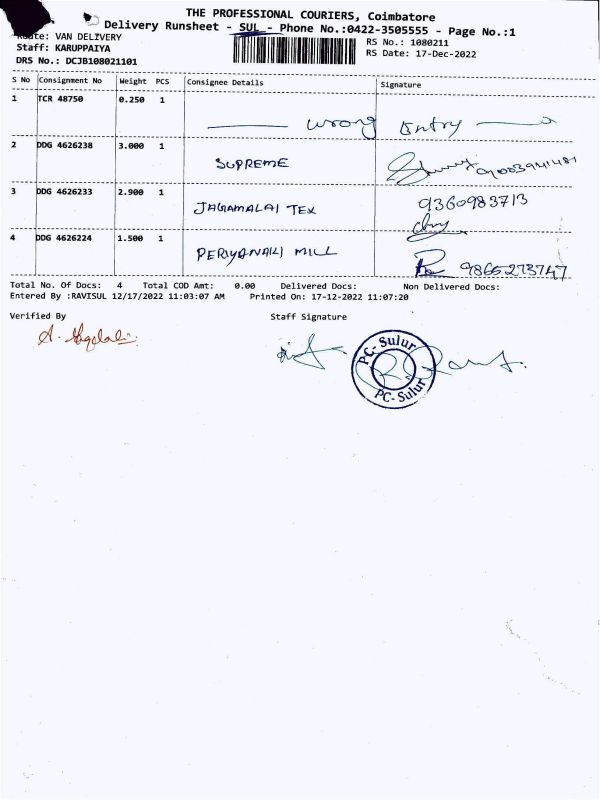 THE PROFESSIONAL COURIERS, Coimbatore
Delivery Runsheet - SUL - Phone No.:0422-3505555 - Page No.:1
Route: VAN DELIVERY
RS No.: 1080211
Staff: KARUPPAIYA
RS Date: 17-Dec-2022
DRS No.: DCJB108021101
S No Consignment No Weight PCS Consignee Details Signature
1 TCR 48750 0.250 1
wrong Entry
2 DDG 4626238 3.000 1
SUPREME
3 DDG 4626233 2.900 1
JAGAMALAI TEX 9360983713
4 DDG 4626224 1.500 1
MILL 9865273747
Total No. Of Docs: 4 Total COD Amt: 0.00 Delivered Docs: Non Delivered Docs:
Entered By :RAVISUL 12/17/2022 11:03:07 AM Printed On: 17-12-2022 11:07:20
Verified By Staff Signature
PC- Sulur
PC- Sulur